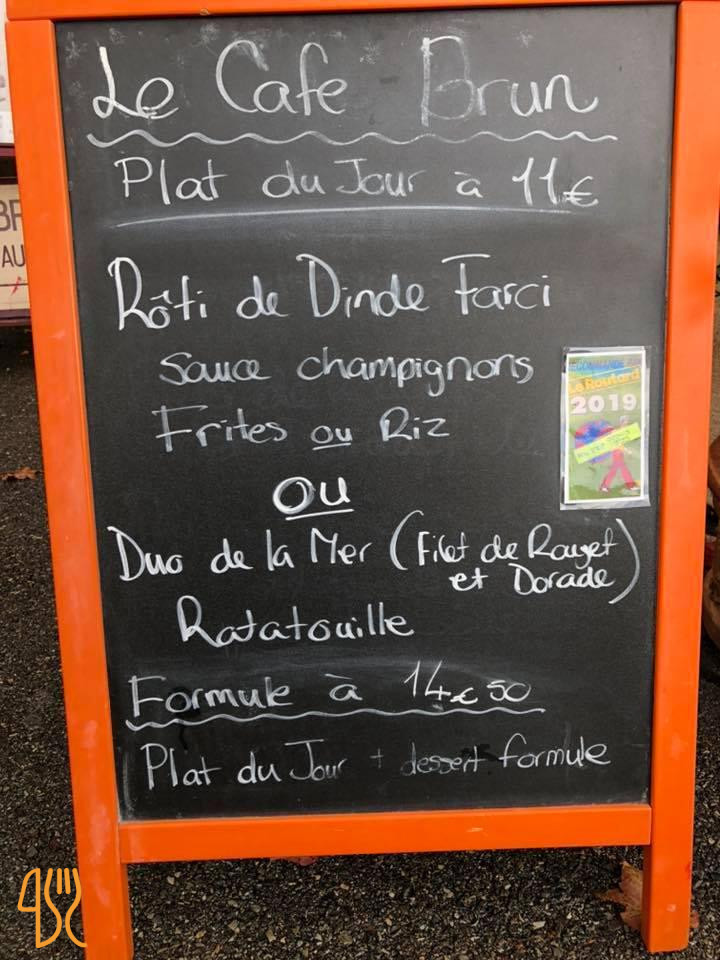 Le Cafe Brun
Plat du Jour à 11€
Rôti de Dinde Farci
sauce champignons
Frites ou Riz
OU
Duo de la Mer (Filet de Rouget
et Dorade)
Ratatouille
Formule à 14€50
Plat du Jour + dessert formule
Le Routard
2019